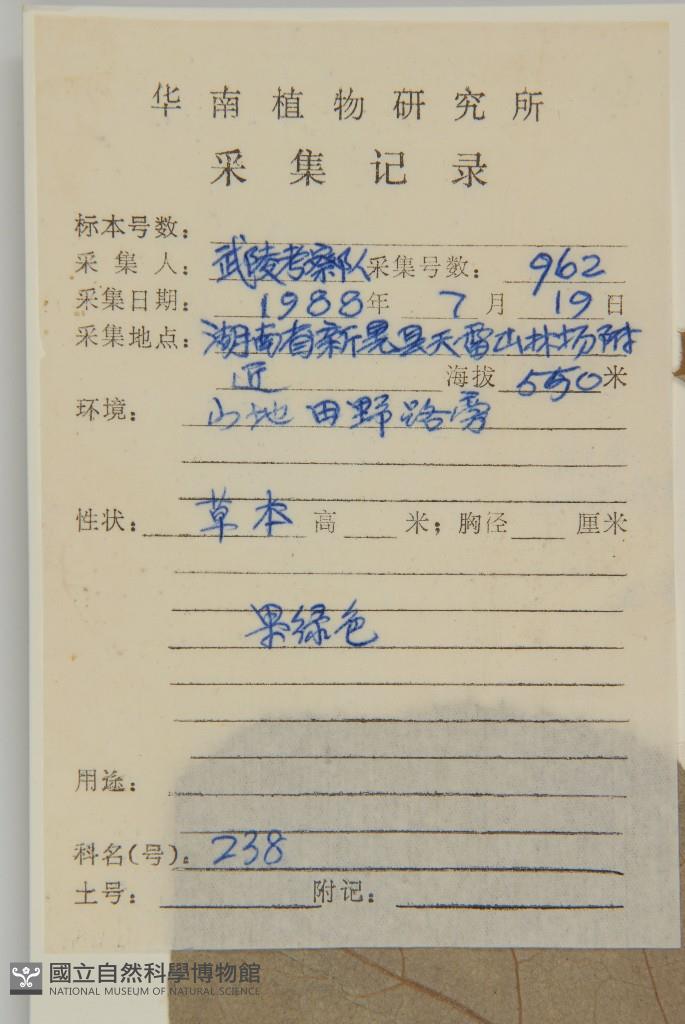 华南植物研究所
采集记录
标本号数：
采集人：武陵考察队采集号数：962
采集日期：1988年7月19日
采集地点：湖南省新晃县天雷山林场附
近 海拔550米
环境：山地田野路旁
性状：草本 高 米；胸径 厘米
果绿色
用途：
科名(号)：238
土号： 附记：
國立自然科學博物館
NATIONAL MUSEUM OF NATURAL SCIENCE